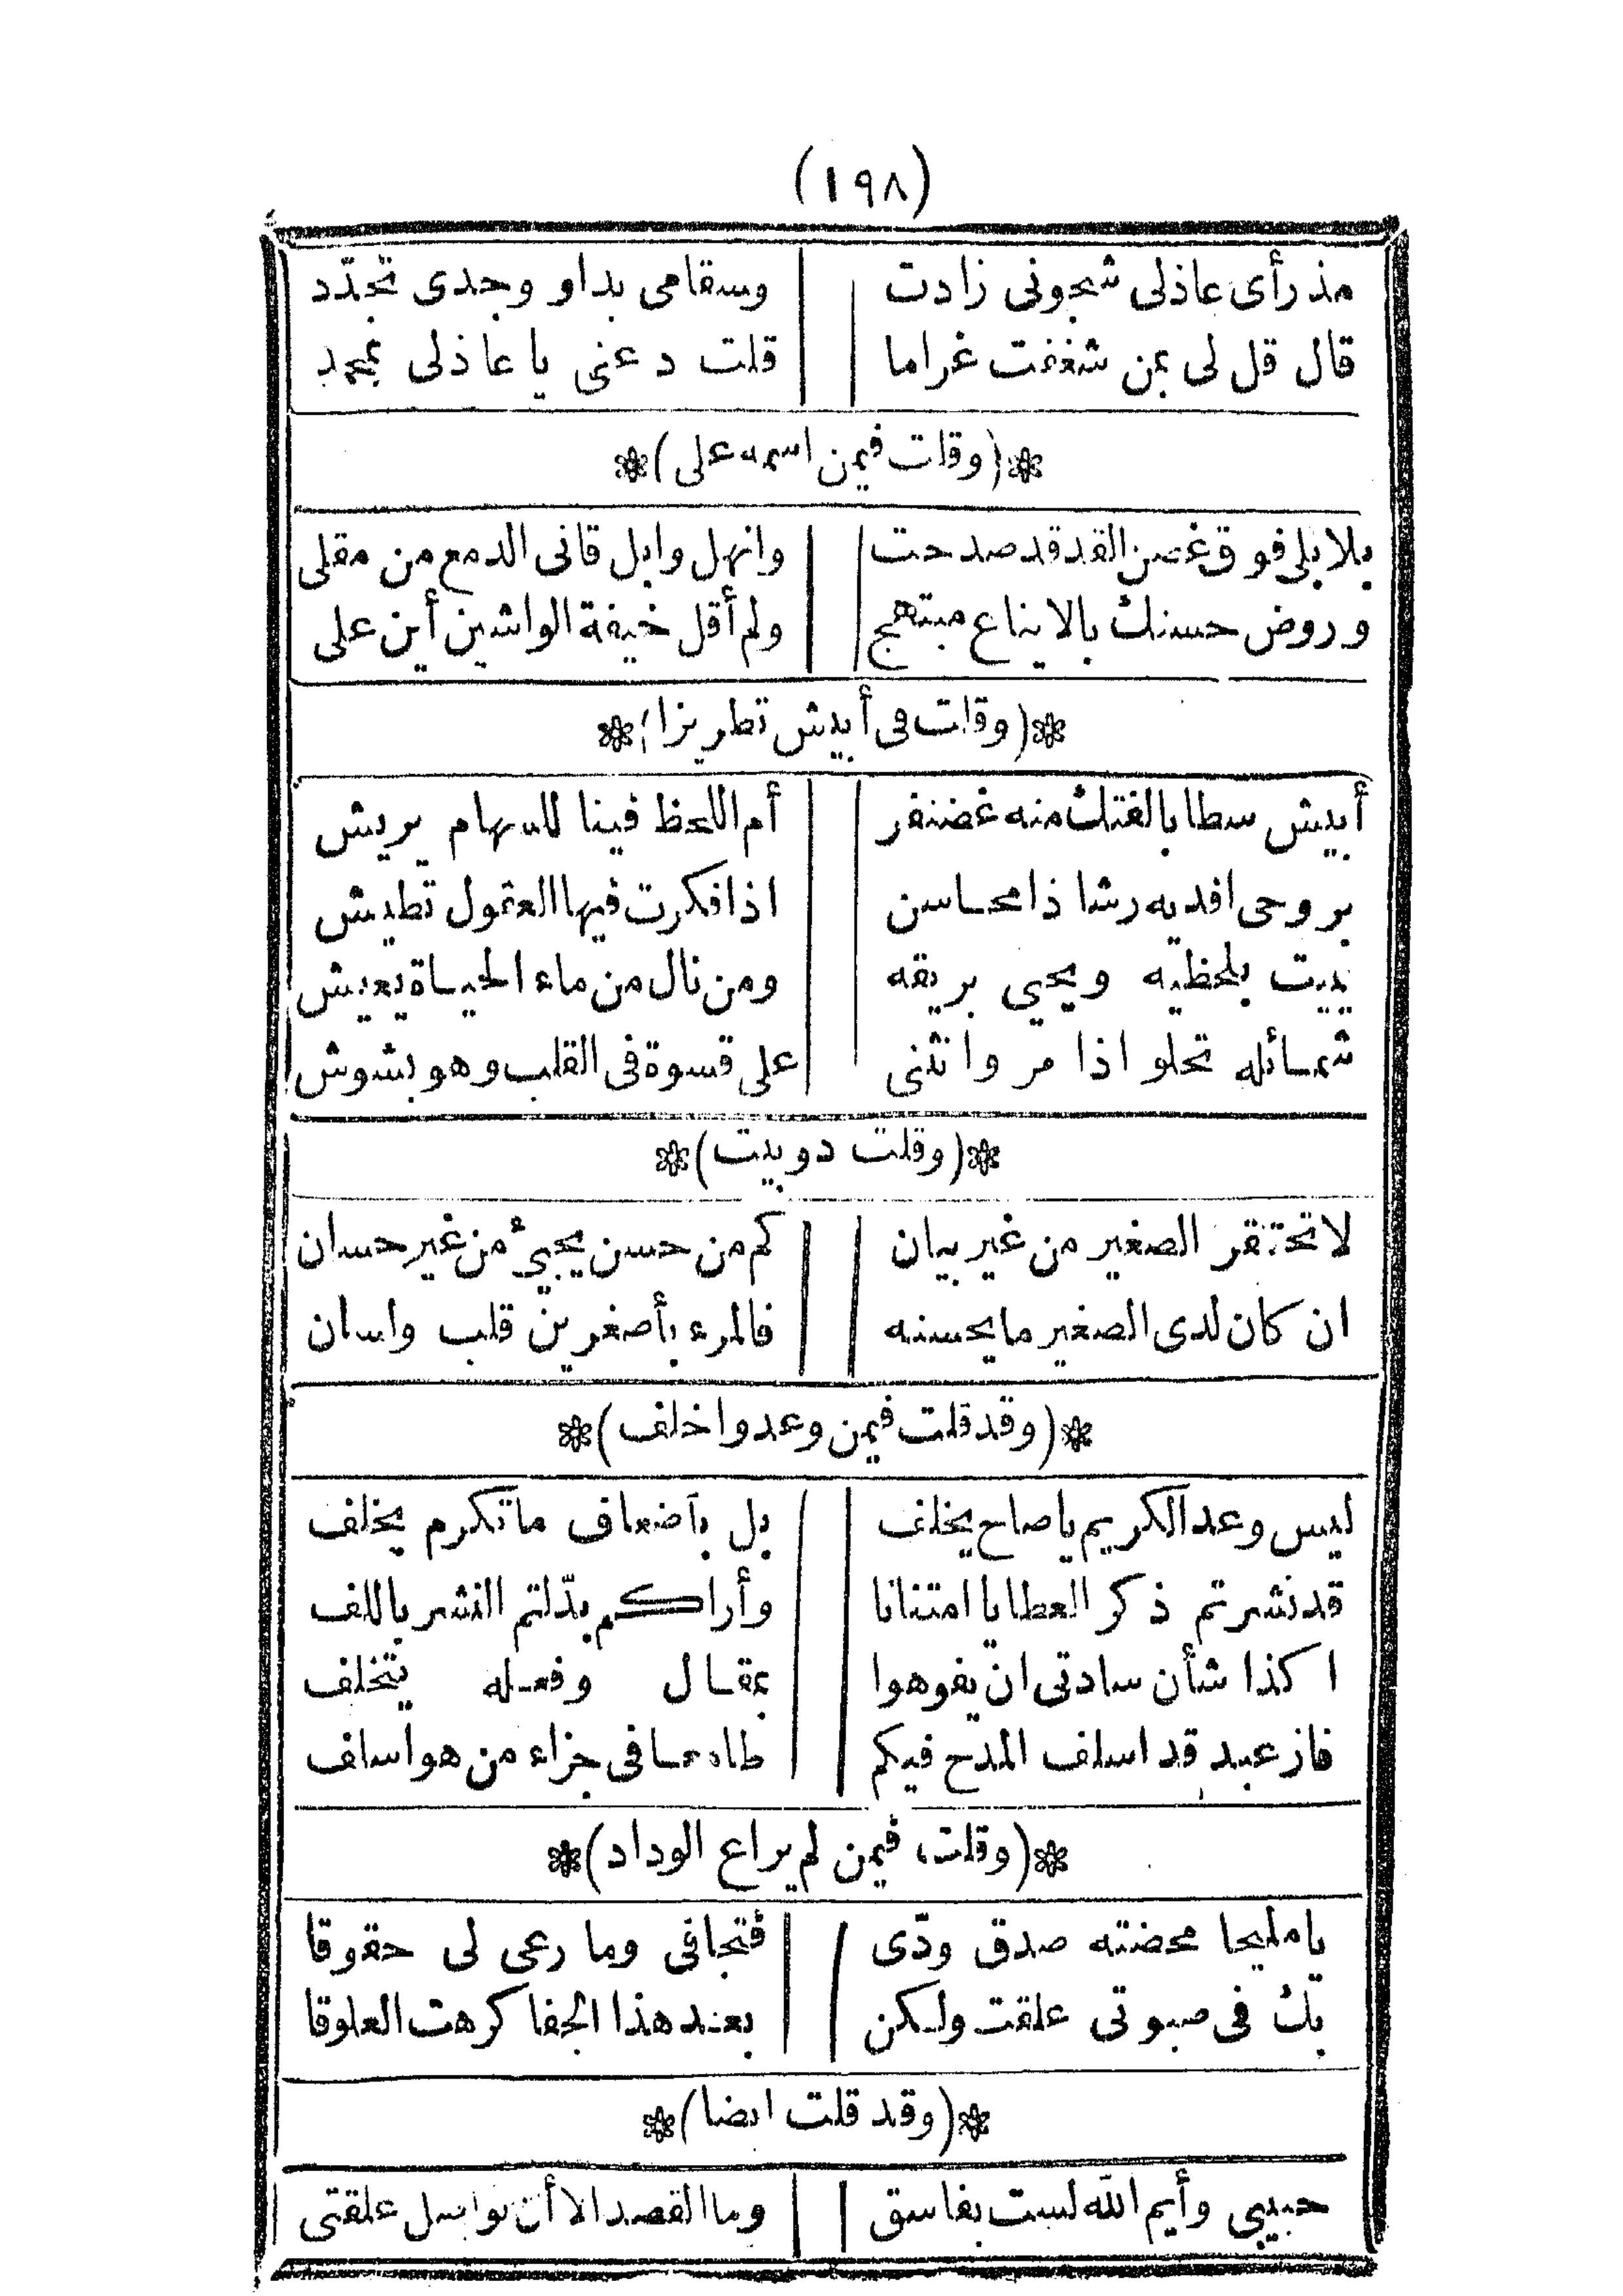 (١٩٨)
مذ رأى عاذلى شجونى زادت وسقامى بدا ووجدى تجدّد
قال قل لى بمن شغفت غراما قلت دعنى يا عاذلى بمحمد
(وقلت فيمن اسمه على)
بلابلى فوق غصن القد قد صدحت وانهل وابل قانى الدمع من مقلى
وروض حسنك بالايناع مبتهج ولم أقل خيفة الواشين أين على
(وقلت فى أبيش تطريزا)
أبيش سطا بالفتك منه غضنفر أم اللحظ فينا للسهام يريش
بروحى افديه رشا ذا محاسن اذا فكرت فيها العقول تطيش
يميت بلحظيه ويحيى بريقه ومن نال من ماء الحياة يعيش
شمائله تحلو اذا مر وانثنى على قسوة فى القلب وهو بشوش
(وقلت دوبيت)
لا تحتقر الصغير من غير بيان كم من حسن يجيئ من غير حسان
ان كان لدى الصغير ما يحسنه فالمرء بأصغرين قلب ولسان
(وقد قلت فيمن وعد واخلف)
ليس وعد الكريم يا صاح يخلف بل بأضعاف ما تكرم يخلف
قد نشرتم ذكر العطايا امتنانا وأراكم بدّلتم النشر باللف
اكذا شأن سادتى ان يفوهوا بمقال وفعله يتخلف
فاز عبد قد اسلف المدح فيكم طامعا فى جزاء من هو اسلف
(وقلت فيمن لم يراع الوداد)
يا مليحا محضته صدق ودّى فتجافى وما رعى لى حقوقا
بك فى صبوتى علقت ولكن بعد هذا الجفا كرهت العلوقا
(وقد قلت ايضا)
حبيبى وأيم الله لست بفاسق وما القصد الا أن تواصل علقتى